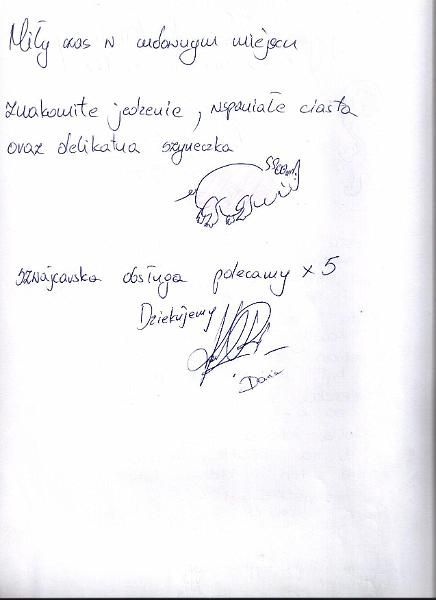 Miły czas w cudownym miejscu
Znakomite jedzenie, wspaniałe ciasta
oraz delikatna szyneczka
szwajcarska obsługa polecamy x 5
Dziekujemy
Daria